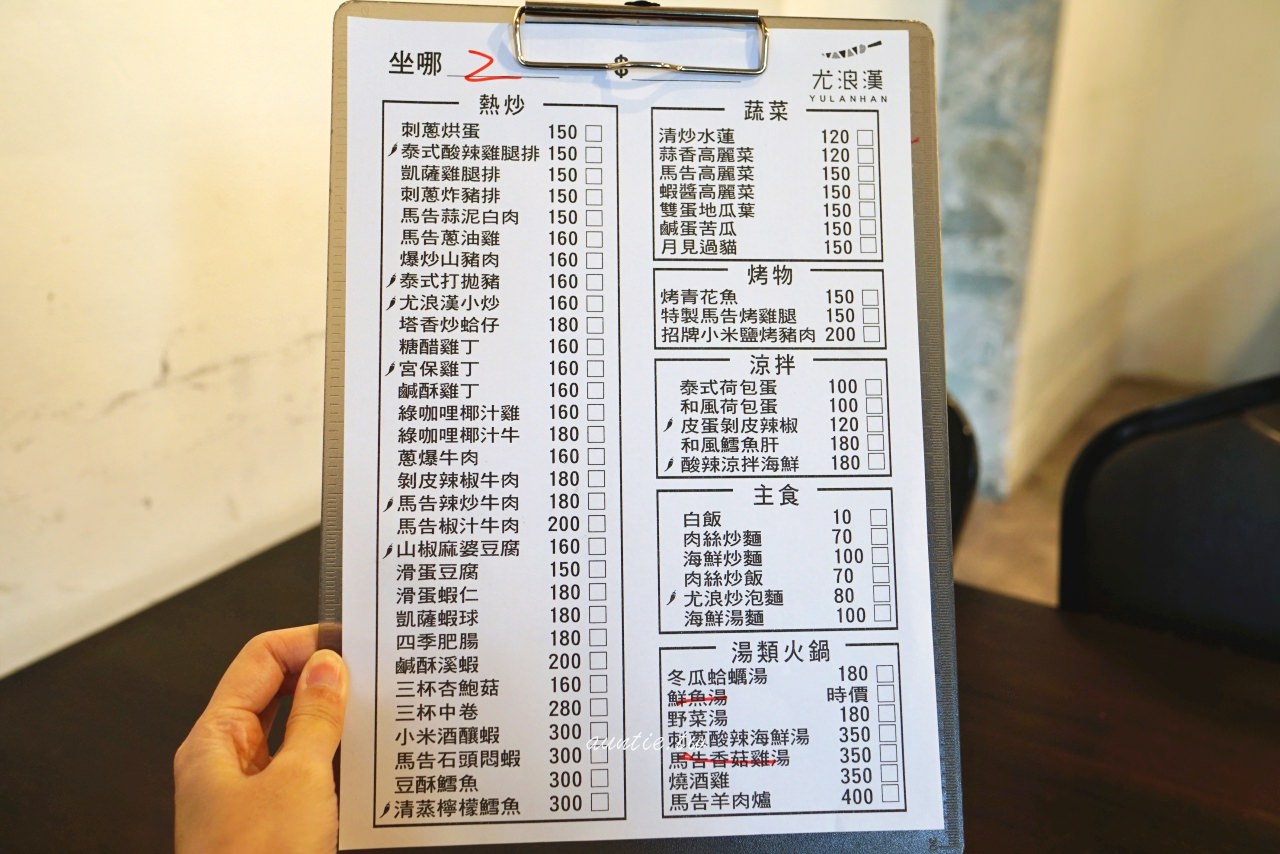 坐哪 2 $
尤浪漢
YULANHAN
熱炒
刺蔥烘蛋 150
泰式酸辣雞腿排 150
凱薩雞腿排 150
刺蔥炸豬排 150
馬告蒜泥白肉 150
馬告蔥油雞 160
爆炒山豬肉 160
泰式打拋豬 160
尤浪漢小炒 160
塔香炒蛤仔 180
糖醋雞丁 160
宮保雞丁 160
鹹酥雞丁 160
綠咖哩椰汁雞 160
綠咖哩椰汁牛 180
蔥爆牛肉 160
剝皮辣椒牛肉 180
馬告辣炒牛肉 180
馬告椒汁牛肉 200
山椒麻婆豆腐 160
滑蛋豆腐 150
滑蛋蝦仁 180
凱薩蝦球 180
四季肥腸 180
鹹酥溪蝦 200
三杯杏鮑菇 160
三杯中卷 280
小米酒釀蝦 300
馬告石頭悶蝦 300
豆酥鱈魚 300
清蒸檸檬鱈魚 300
蔬菜
清炒水蓮 120
蒜香高麗菜 120
馬告高麗菜 150
蝦醬高麗菜 150
雙蛋地瓜葉 150
鹹蛋苦瓜 150
月見過貓 150
烤物
烤青花魚 150
特製馬告烤雞腿 150
招牌小米鹽烤豬肉 200
涼拌
泰式荷包蛋 100
和風荷包蛋 100
皮蛋剝皮辣椒 120
和風鱈魚肝 180
酸辣涼拌海鮮 180
主食
白飯 10
肉絲炒麵 70
海鮮炒麵 100
肉絲炒飯 70
尤浪炒泡麵 80
海鮮湯麵 100
湯類火鍋
冬瓜蛤蠣湯 180
鮮魚湯 時價
野菜湯 180
刺蔥酸辣海鮮湯 350
馬告香菇雞湯 350
燒酒雞 350
馬告羊肉爐 400